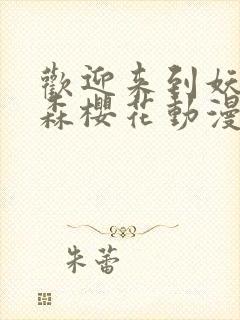 歡迎来到妖
森櫻花動漫
朱蕾